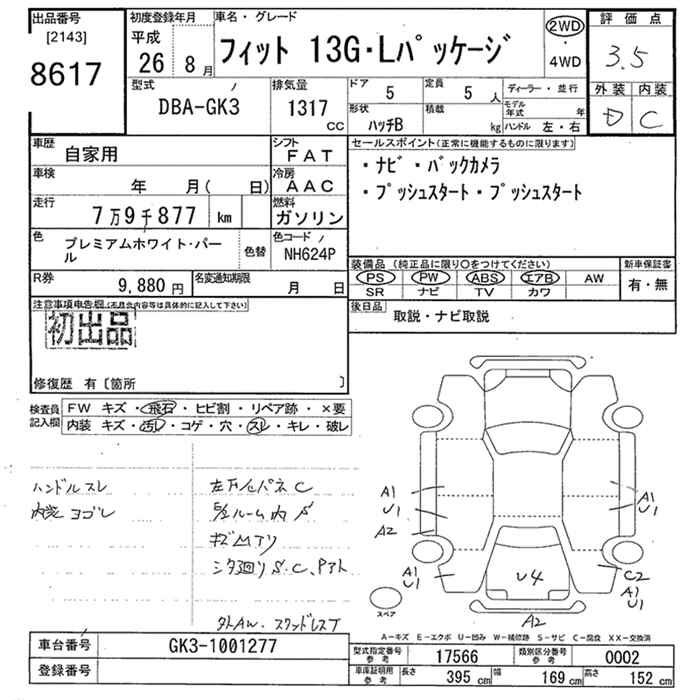 出品番号
[2143]
8617
初度登録年月
平成
26 8月
車名・グレード
フィット 13G・Lパッケージ
2WD
・
4WD
評価点
3.5
外装 内装
D C
型式
DBA-GK3
排気量
1317
CC
ドア 5
定員 5 人
形状
ハッチB
積載 kg
ディーラー・並行
モデル年式 年
ハンドル 左・右
車歴 自家用
シフト
FAT
車検 年 月( 日)
冷房
AAC
走行 7万9千877 km
燃料
ガソリン
色 プレミアムホワイト・パール
色替
色コード
NH624P
R券 9,880 円
名変通知期限 月 日
セールスポイント(正常に機能するものに限ります)
・ナビ・バックカメラ
・プッシュスタート・プッシュスタート
装備品 (純正品に限り○をつけてください)
PS PW ABS エアB AW
SR ナビ TV カワ
新車保証書
有・無
後日品 取説・ナビ取説
注意事項申告欄(不具合内容等は具体的に記入して下さい)
初出品
修復歴 有〔箇所 〕
検査員記入欄
FW キズ・飛石・ヒビ割・リペア跡・×要
内装 キズ・汚レ・コゲ・穴・スレ・キレ・破レ
ハンドルスレ
内装ヨゴレ
ルーム内 S
シタ廻りS.C.
外AW. スタッドレスT
A1
U1
A2
A1
U1
A1
U1
U4
C2
A1
U1
A2
スペア
A-キズ E-エクボ U-凹み W-補修跡 S-サビ C-腐食 XX-交換済
車台番号 GK3-1001277
登録番号
型式指定番号 参考 17566
類別区分番号 参考 0002
車庫証明用 参考 長さ 395 cm 幅 169 cm 高さ 152 cm